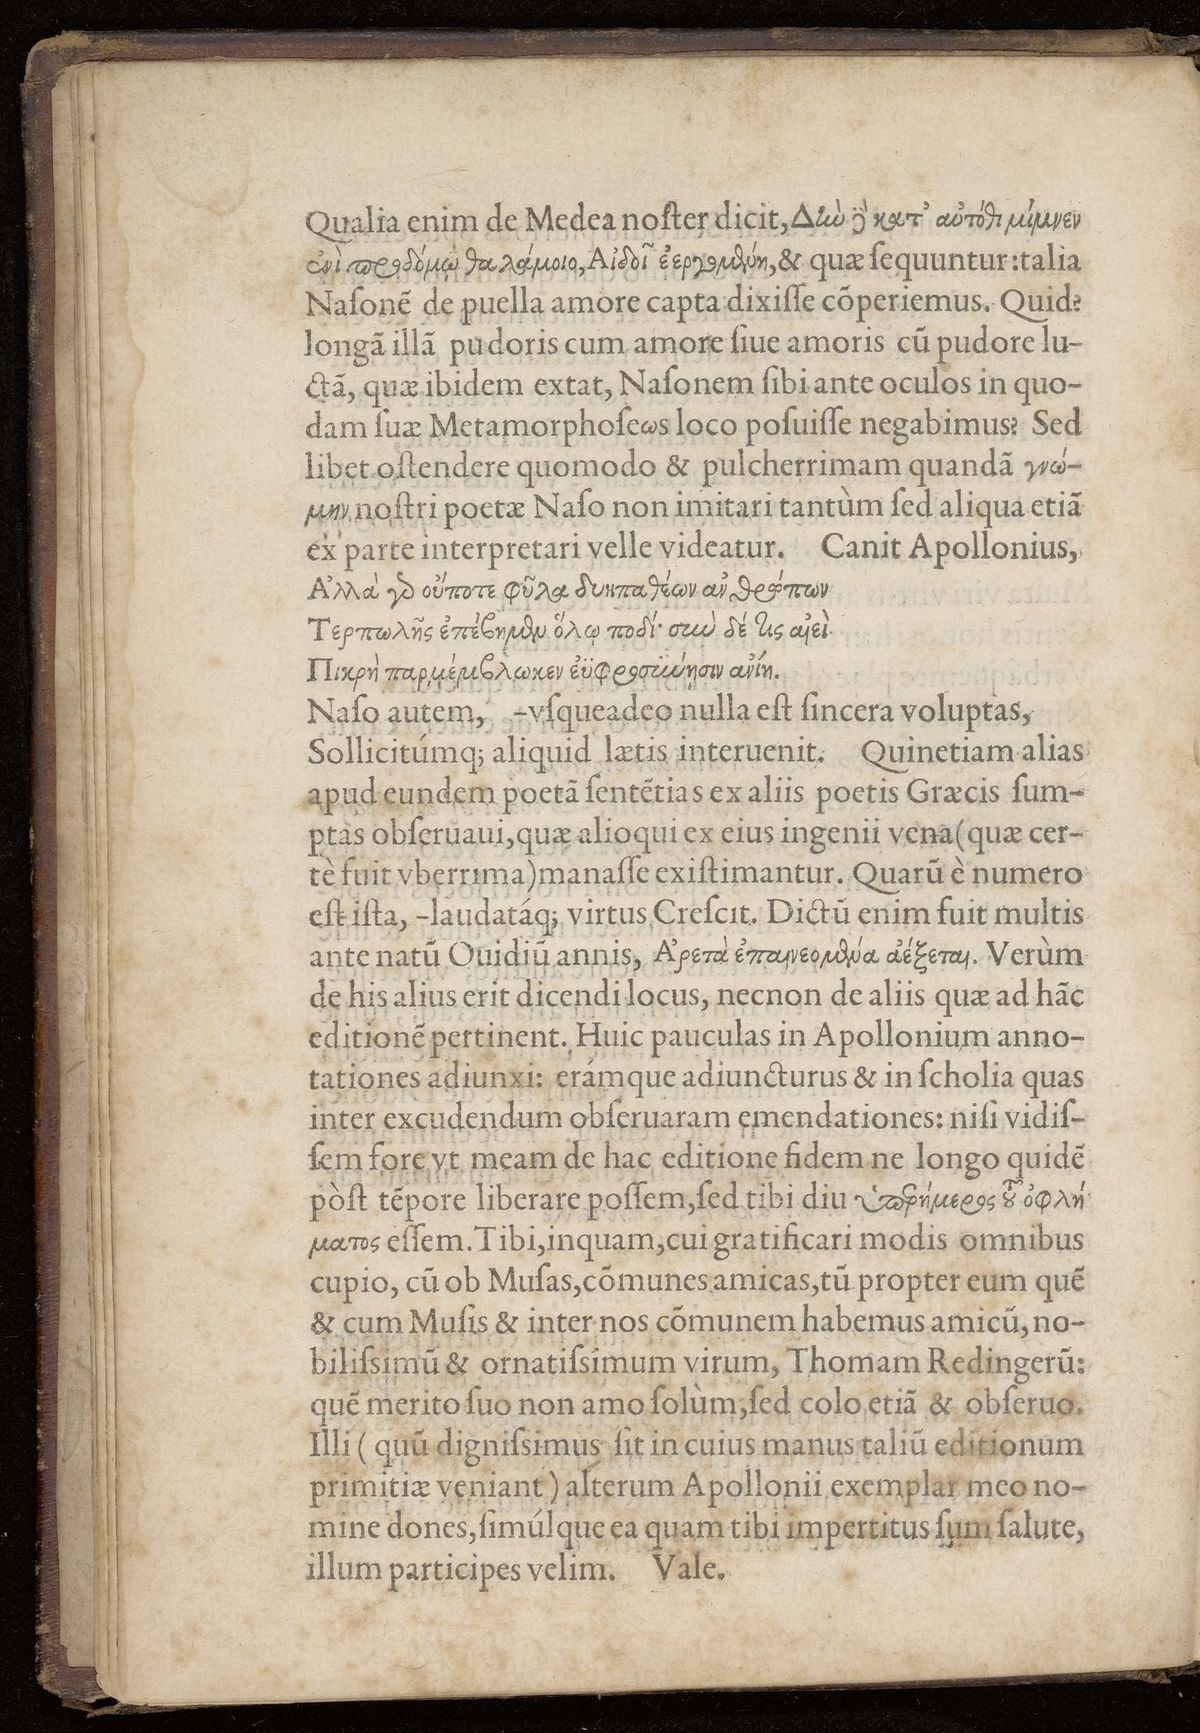 Qualia enim de Medea noſter dicit, Δὴν δὲ κατ' αὐτόθι μίμνεν
ἐνὶ προδόμῳ θαλάμοιο, Αἰδοῖ ἐεργομένη, & quæ ſequuntur: talia
Naſonẽ de puella amore capta dixiſſe cõperiemus. Quid?
longã illã pudoris cum amore ſiue amoris cũ pudore lu-
ctã, quæ ibidem extat, Naſonem ſibi ante oculos in quo-
dam ſuæ Metamorphoſeωs loco poſuiſſe negabimus? Sed
libet oſtendere quomodo & pulcherrimam quandã γνώ-
μην noſtri poetæ Naſo non imitari tantùm ſed aliqua etiã
ex parte interpretari velle videatur. Canit Apollonius,
Αλλὰ γὸ οὔποτε φῦλα δυηπαθέων ἀνθρώπων
Τερπωλῆς ἐπέβημεν ὅλῳ ποδί· σὺν δέ τις αἰεὶ
Πικρὴ παρμέμβλωκεν ἐϋφροσύνῃσιν ἀνίη.
Naſo autem, -vſqueadeo nulla eſt ſincera voluptas,
Sollicitúmq; aliquid lætis interuenit. Quinetiam alias
apud eundem poetã ſentẽtias ex aliis poetis Græcis ſum-
ptas obſeruaui, quæ alioqui ex eius ingenii vena (quæ cer-
tè fuit vberrima) manaſſe exiſtimantur. Quarũ è numero
eſt iſta, -laudatáq; virtus Creſcit. Dictũ enim fuit multis
ante natũ Ouidiũ annis, Αρετὰ ἐπαινεομένα ἀέξεται. Verùm
de his alius erit dicendi locus, necnon de aliis quæ ad hãc
editionẽ pertinent. Huic pauculas in Apollonium anno-
tationes adiunxi: erámque adiuncturus & in ſcholia quas
inter excudendum obſeruaram emendationes: niſi vidiſ-
ſem fore vt meam de hac editione fidem ne longo quidẽ
pòſt tẽpore liberare poſſem, ſed tibi diu ὑπερήμερος τοῦ ὀφλή
ματος eſſem. Tibi, inquam, cui gratificari modis omnibus
cupio, cũ ob Muſas, cõmunes amicas, tũ propter eum quẽ
& cum Muſis & inter nos cõmunem habemus amicũ, no-
biliſsimũ & ornatiſsimum virum, Thomam Redingerũ:
quẽ merito ſuo non amo ſolùm, ſed colo etiã & obſeruo.
Illi ( quũ digniſsimus ſit in cuius manus taliũ editionum
primitiæ veniant ) alterum Apollonii exemplar meo no-
mine dones, ſimúlque ea quam tibi impertitus ſum ſalute,
illum participes velim. Vale.